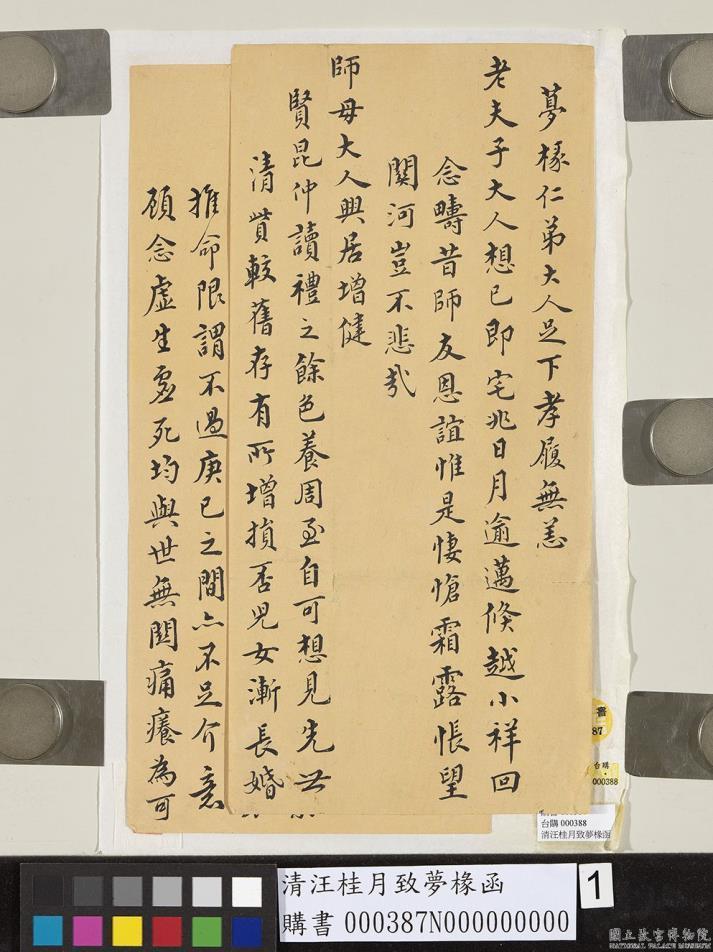 夢椽仁弟大人足下孝履無恙
老夫子大人想已即宅兆日月逾邁倏越小祥回
念疇昔師友恩誼惟是悽愴霜露悵望
關河豈不悲哉
師母大人興居增健
賢昆仲讀禮之餘色養周至自可想見先世
清貲較舊存有所增損否兒女漸長婚
推命限謂不過庚巳之間亦不足介意
顧念虛生虛死均與世無關痛癢為可
書
87
台購
000388
台購 000388
清汪桂月致夢椽函
清汪桂月致夢椽函
購書 000387N000000000
1
國立故宮博物院
NATIONAL PALACE MUSEUM